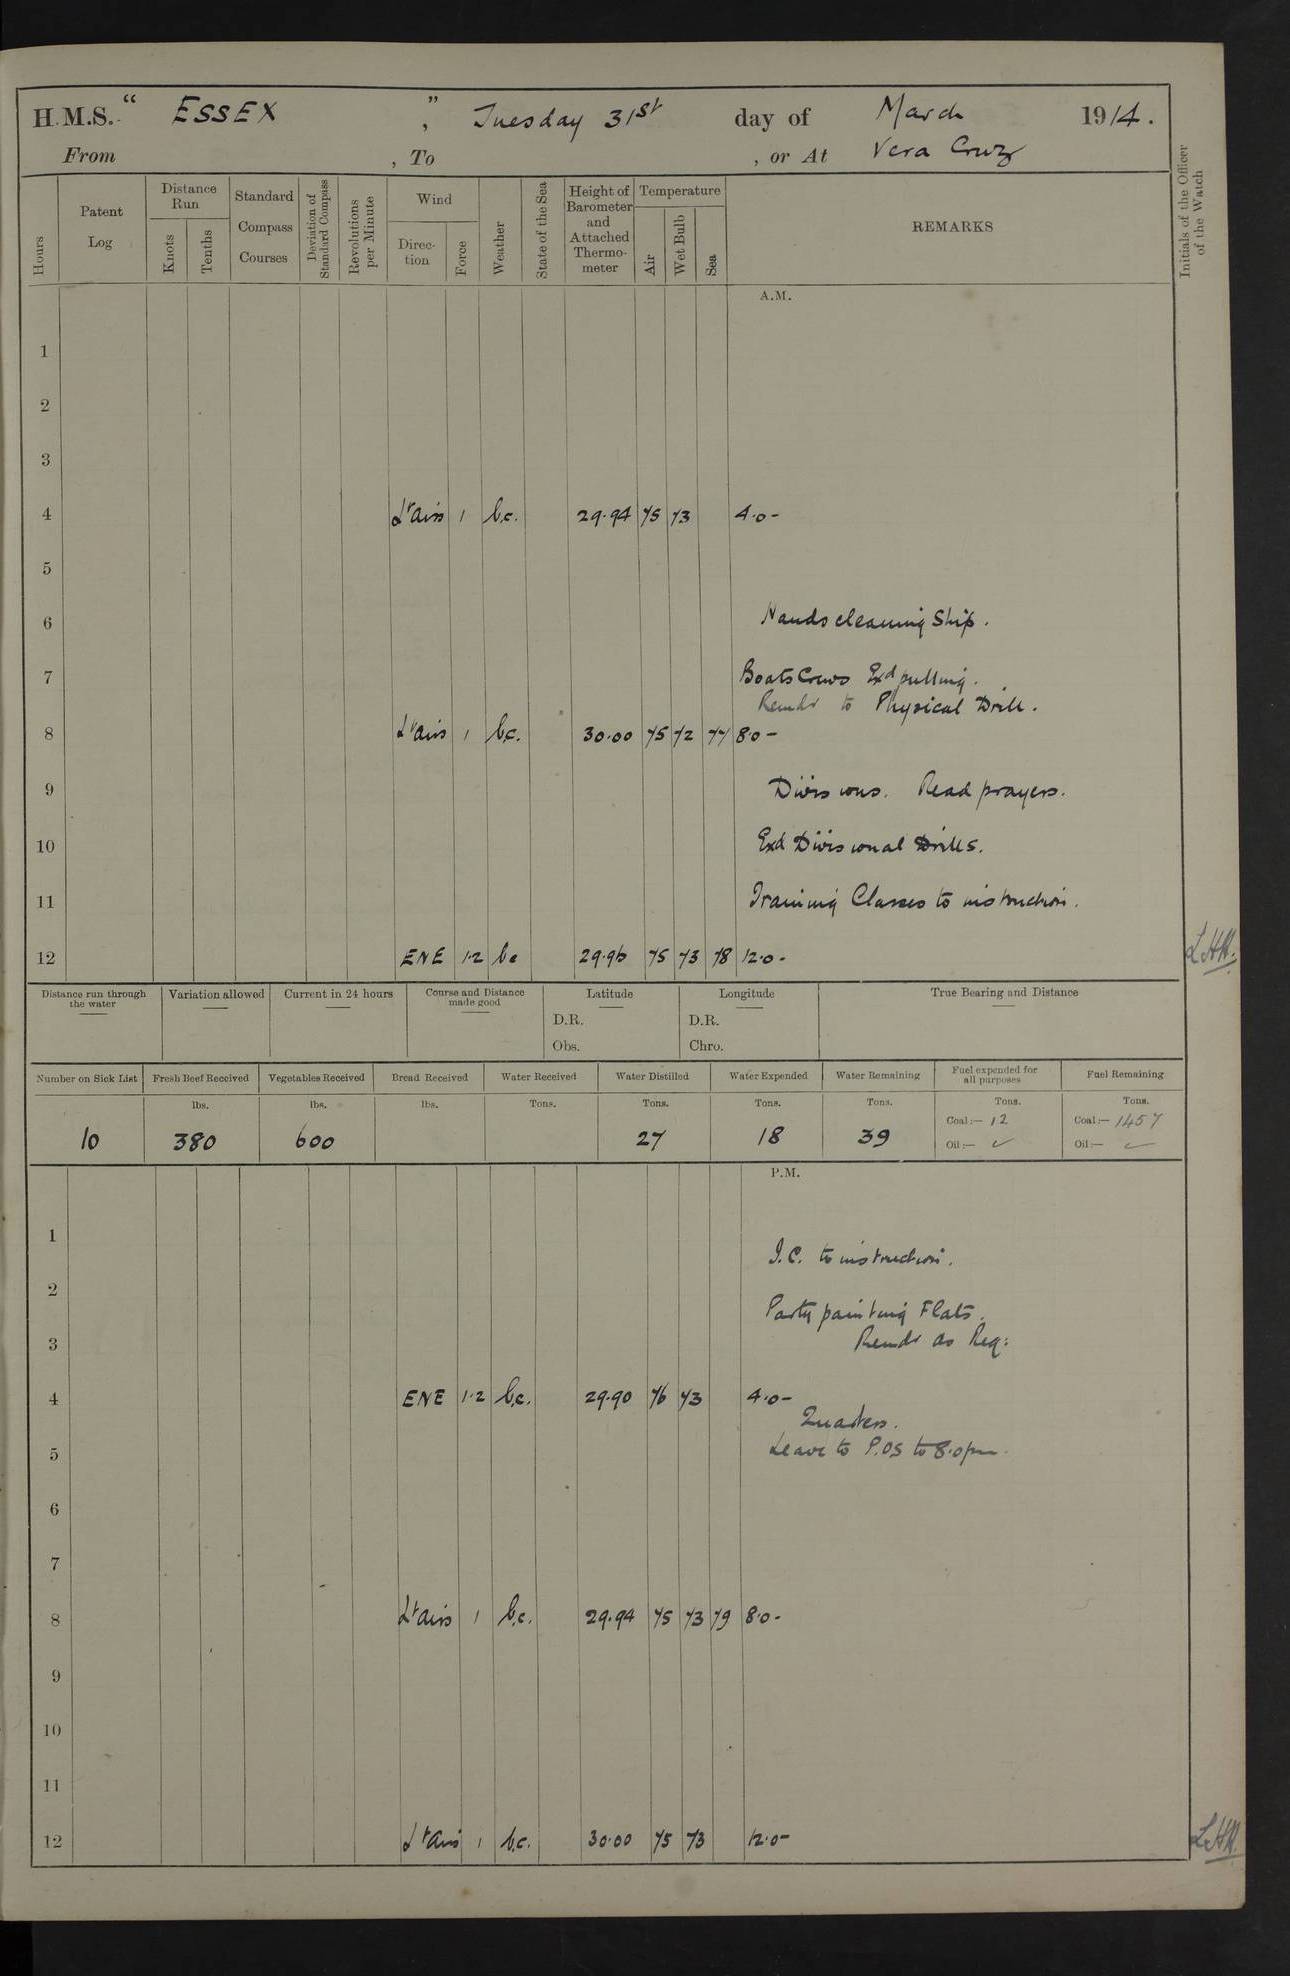 H.M.S. " ESSEX ", Tuesday 31st day of March 1914.
From , To , or At Vera Cruz
Hours
Patent Log
Distance Run
Knots
Tenths
Standard Compass Courses
Deviation of Standard Compass
Revolutions per Minute
Wind
Direc-tion
Force
Weather
State of the Sea
Height of Barometer and Attached Thermo-meter
Temperature
Air
Wet Bulb
Sea
REMARKS
Initials of the Officer of the Watch
A.M.
1
2
3
4 Lt airs 1 b.c. 29.94 75 73 4.0-
5
6 Hands cleaning Ship.
7 Boats Crews Exd pulling.
Remdr to Physical Drill.
8 Lt airs 1 b.c. 30.00 75 72 77 8.0-
9 Divisions. Read prayers.
10 Exd Divisional Drills.
11 Training Classes to instruction.
12 ENE 1.2 bc 29.96 75 73 78 12.0-
Distance run through the water
Variation allowed
Current in 24 hours
Course and Distance made good
Latitude
Longitude
True Bearing and Distance
D.R. D.R.
Obs. Chro.
Number on Sick List
Fresh Beef Received
Vegetables Received
Bread Received
Water Received
Water Distilled
Water Expended
Water Remaining
Fuel expended for all purposes
Fuel Remaining
lbs. lbs. lbs. Tons. Tons. Tons. Tons. Tons. Tons.
Coal:- 12 Coal:- 1457
10 380 600 27 18 39 Oil:- ✓ Oil:- ✓
P.M.
1 T.C. to instruction.
2 Party painting Flats.
3 Remdr as Req:
4 ENE 1.2 b.c. 29.90 76 73 4.0-
Quarters.
5 Leave to P.OS to 8.0pm.
6
7
8 Lt airs 1 b.c. 29.94 75 73 79 8.0-
9
10
11
12 Lt airs 1 b.c. 30.00 75 73 12.0-